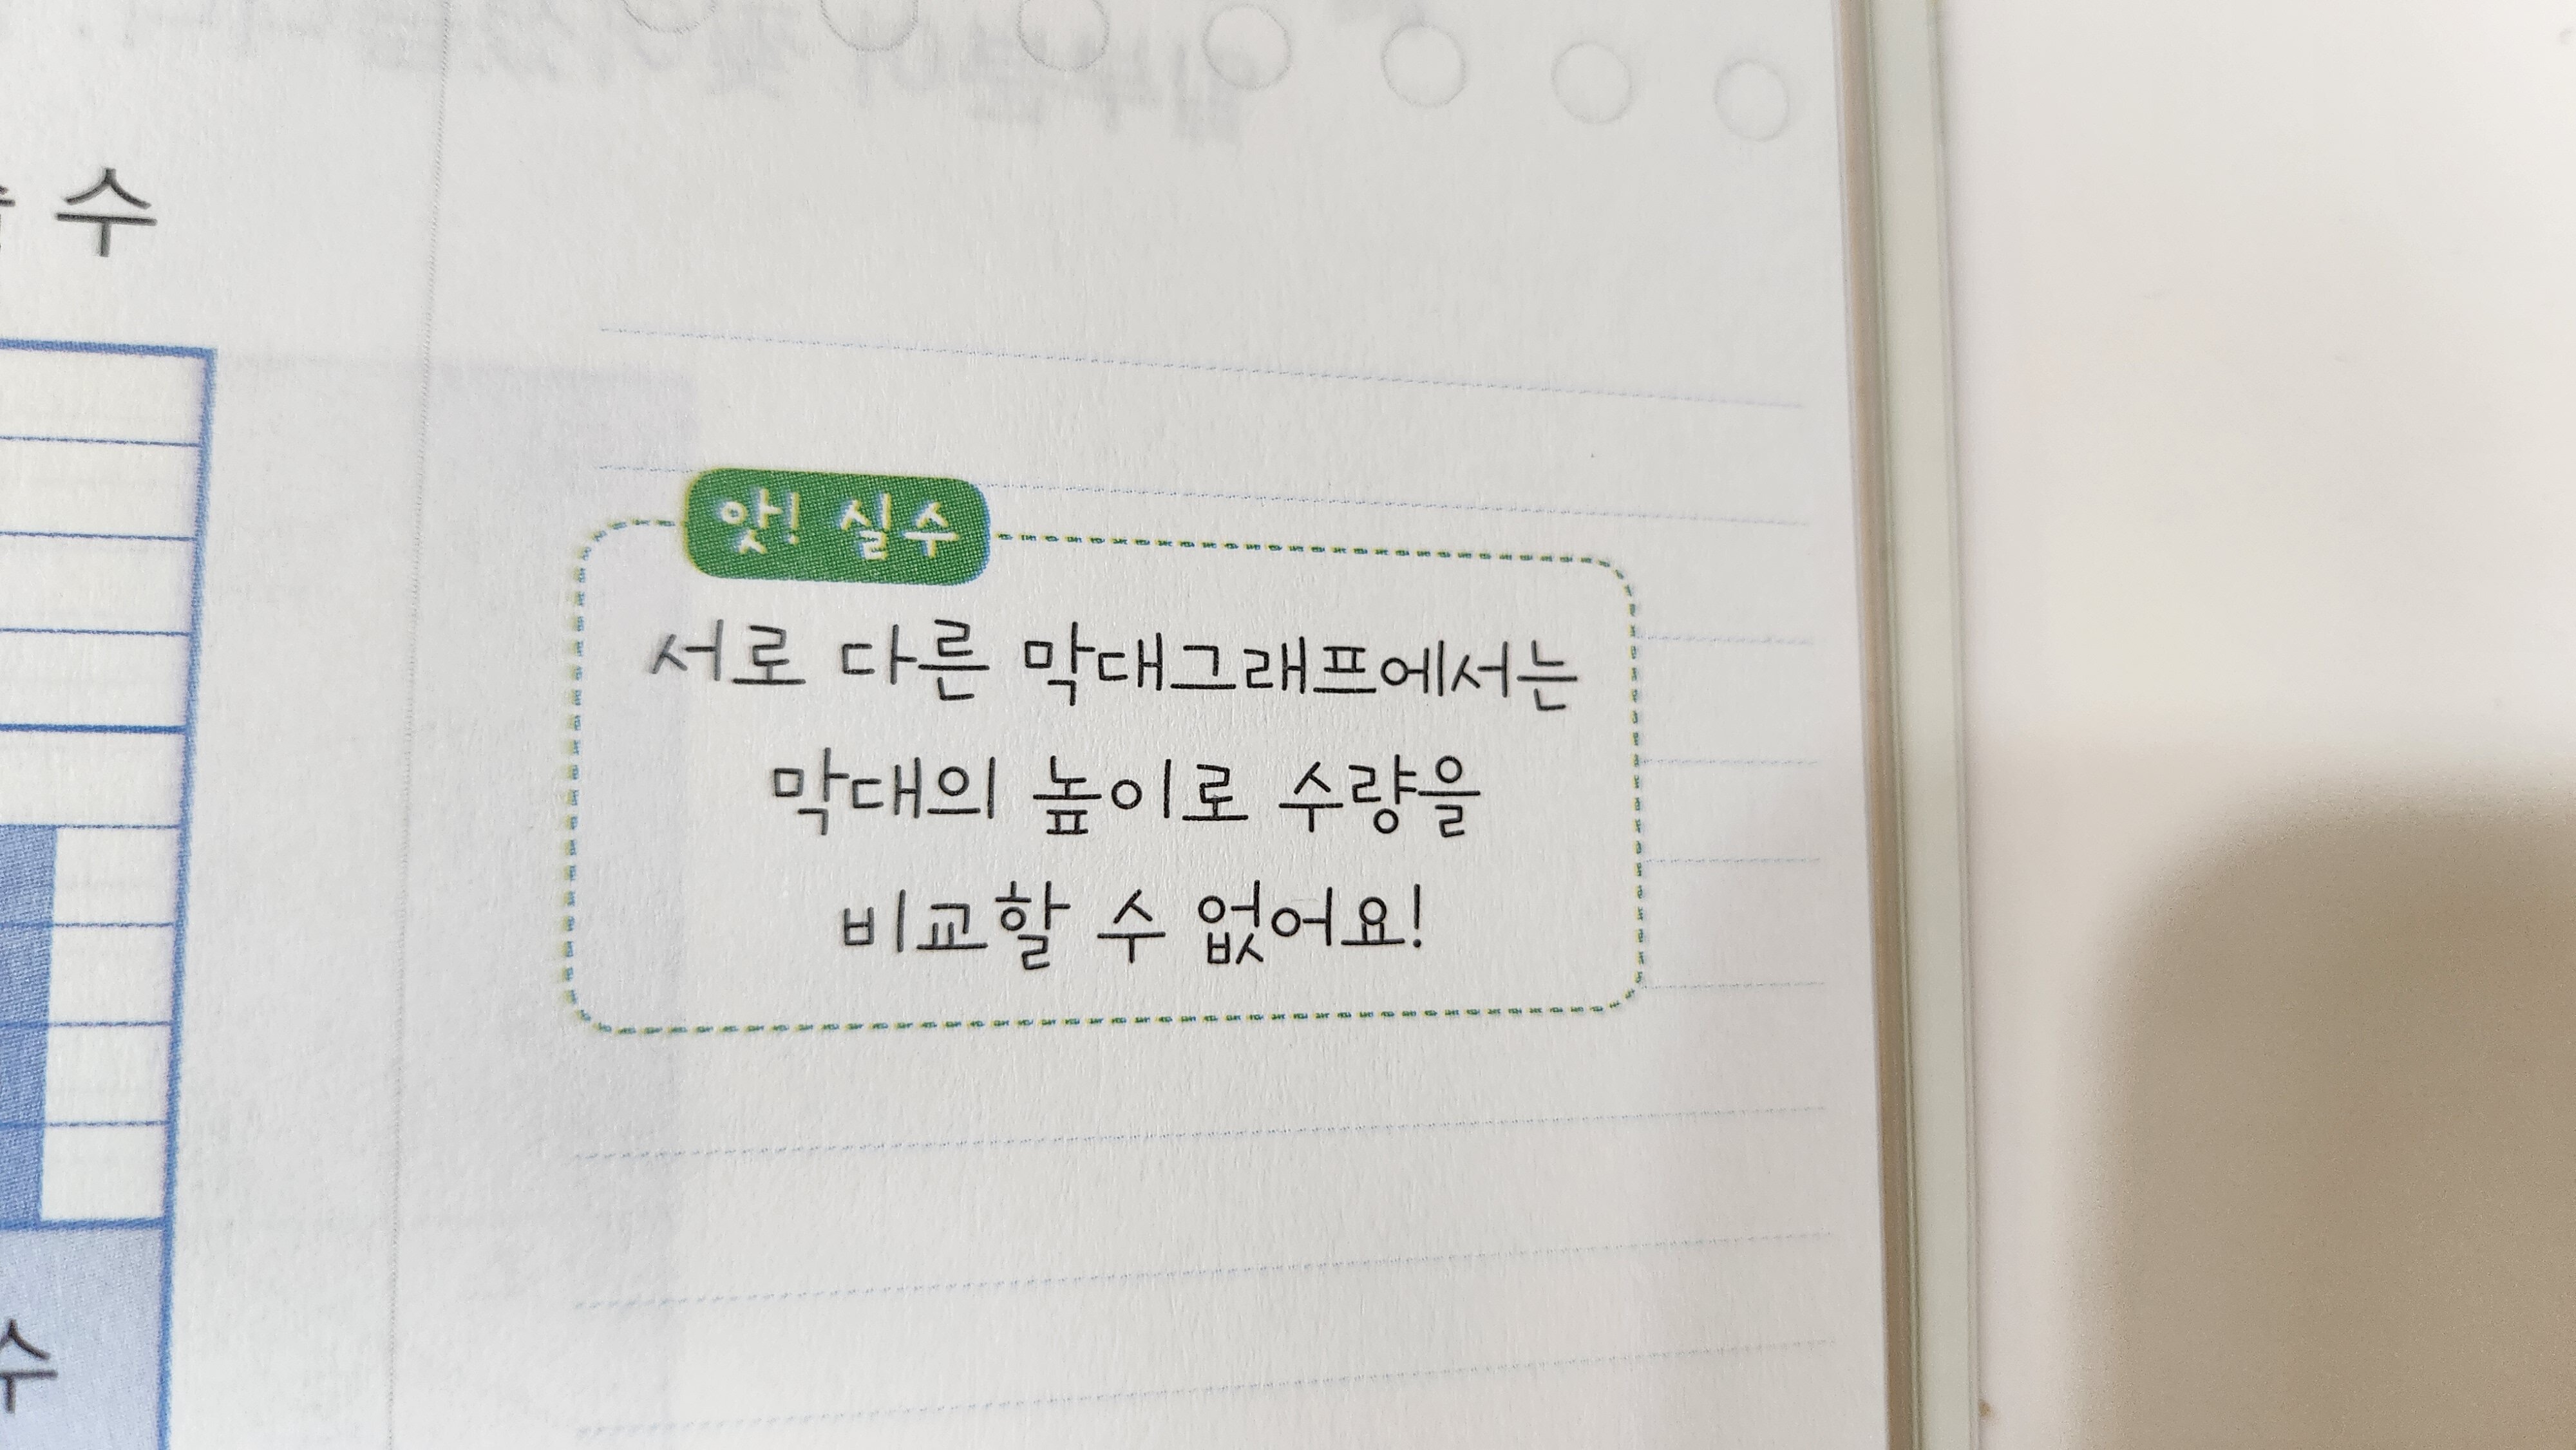 수
앗! 실수
서로 다른 막대그래프에서는
막대의 높이로 수량을
비교할 수 없어요!
수